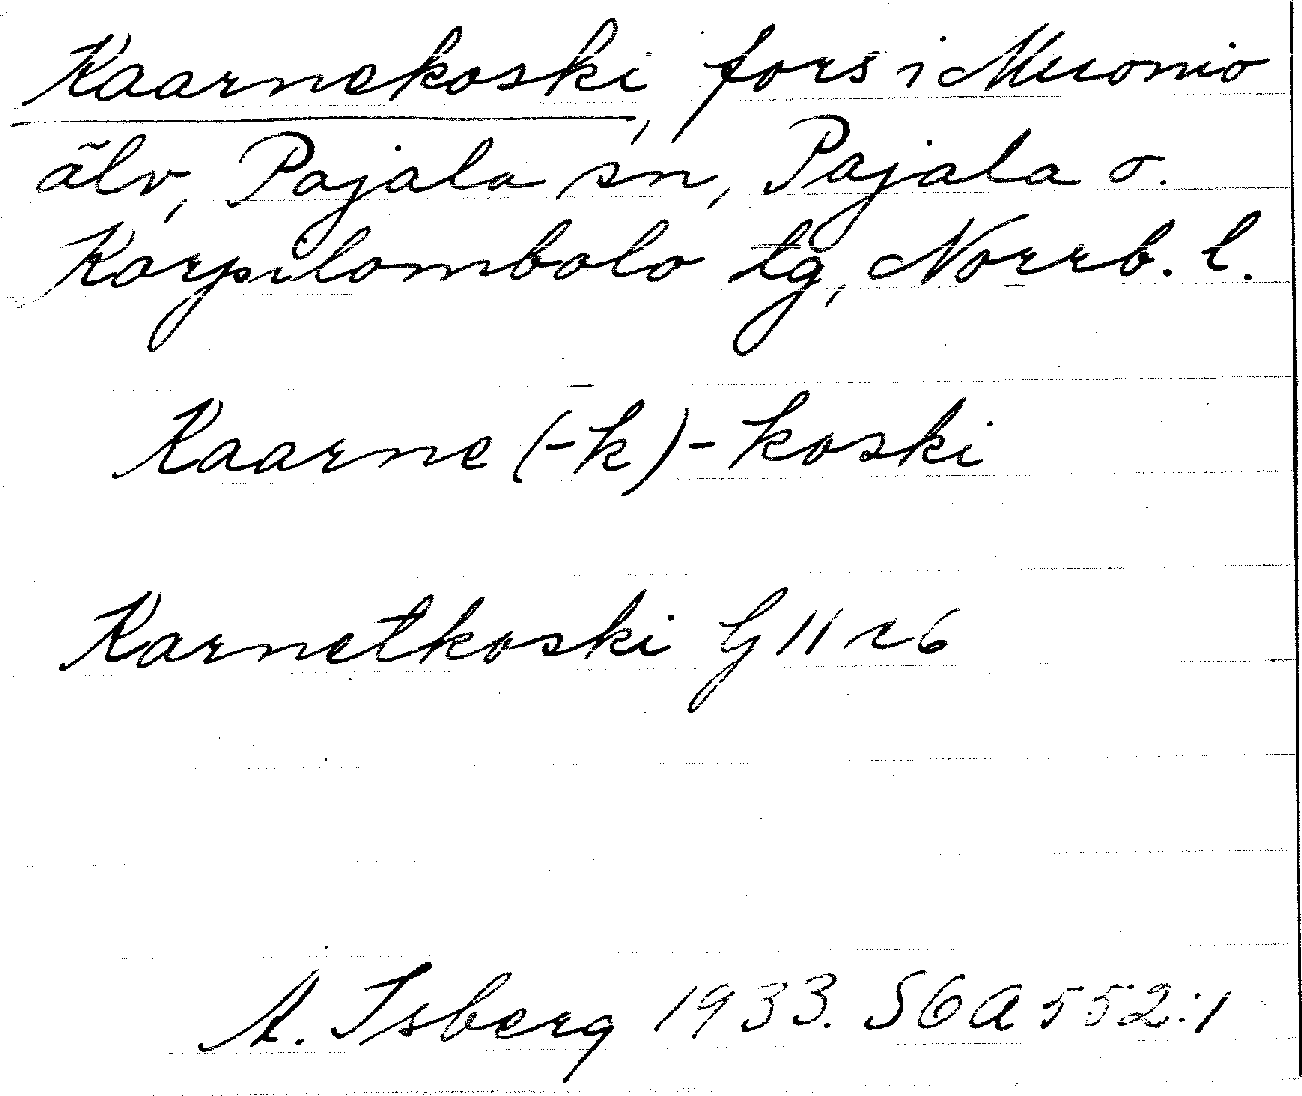 Kaarnekoski, fors i Muonio
älv, Pajala sn, Pajala o.
Korpilombolo tg, Norrb. l.
Kaarne(-k)-koski
Karnetkoski G 11 r 6
A. Isberg 1933. SOA 552:1